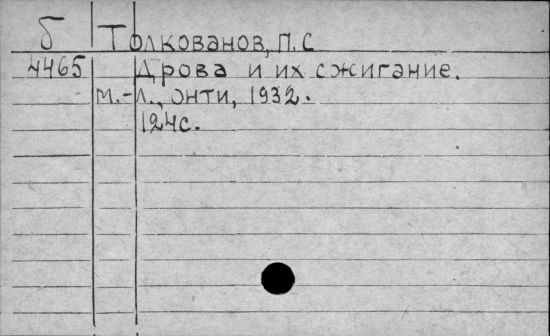 б Толкованов, П. С
4465 Дрова и их сжигание.
М.-Л., ОНТИ, 1932.
124с.